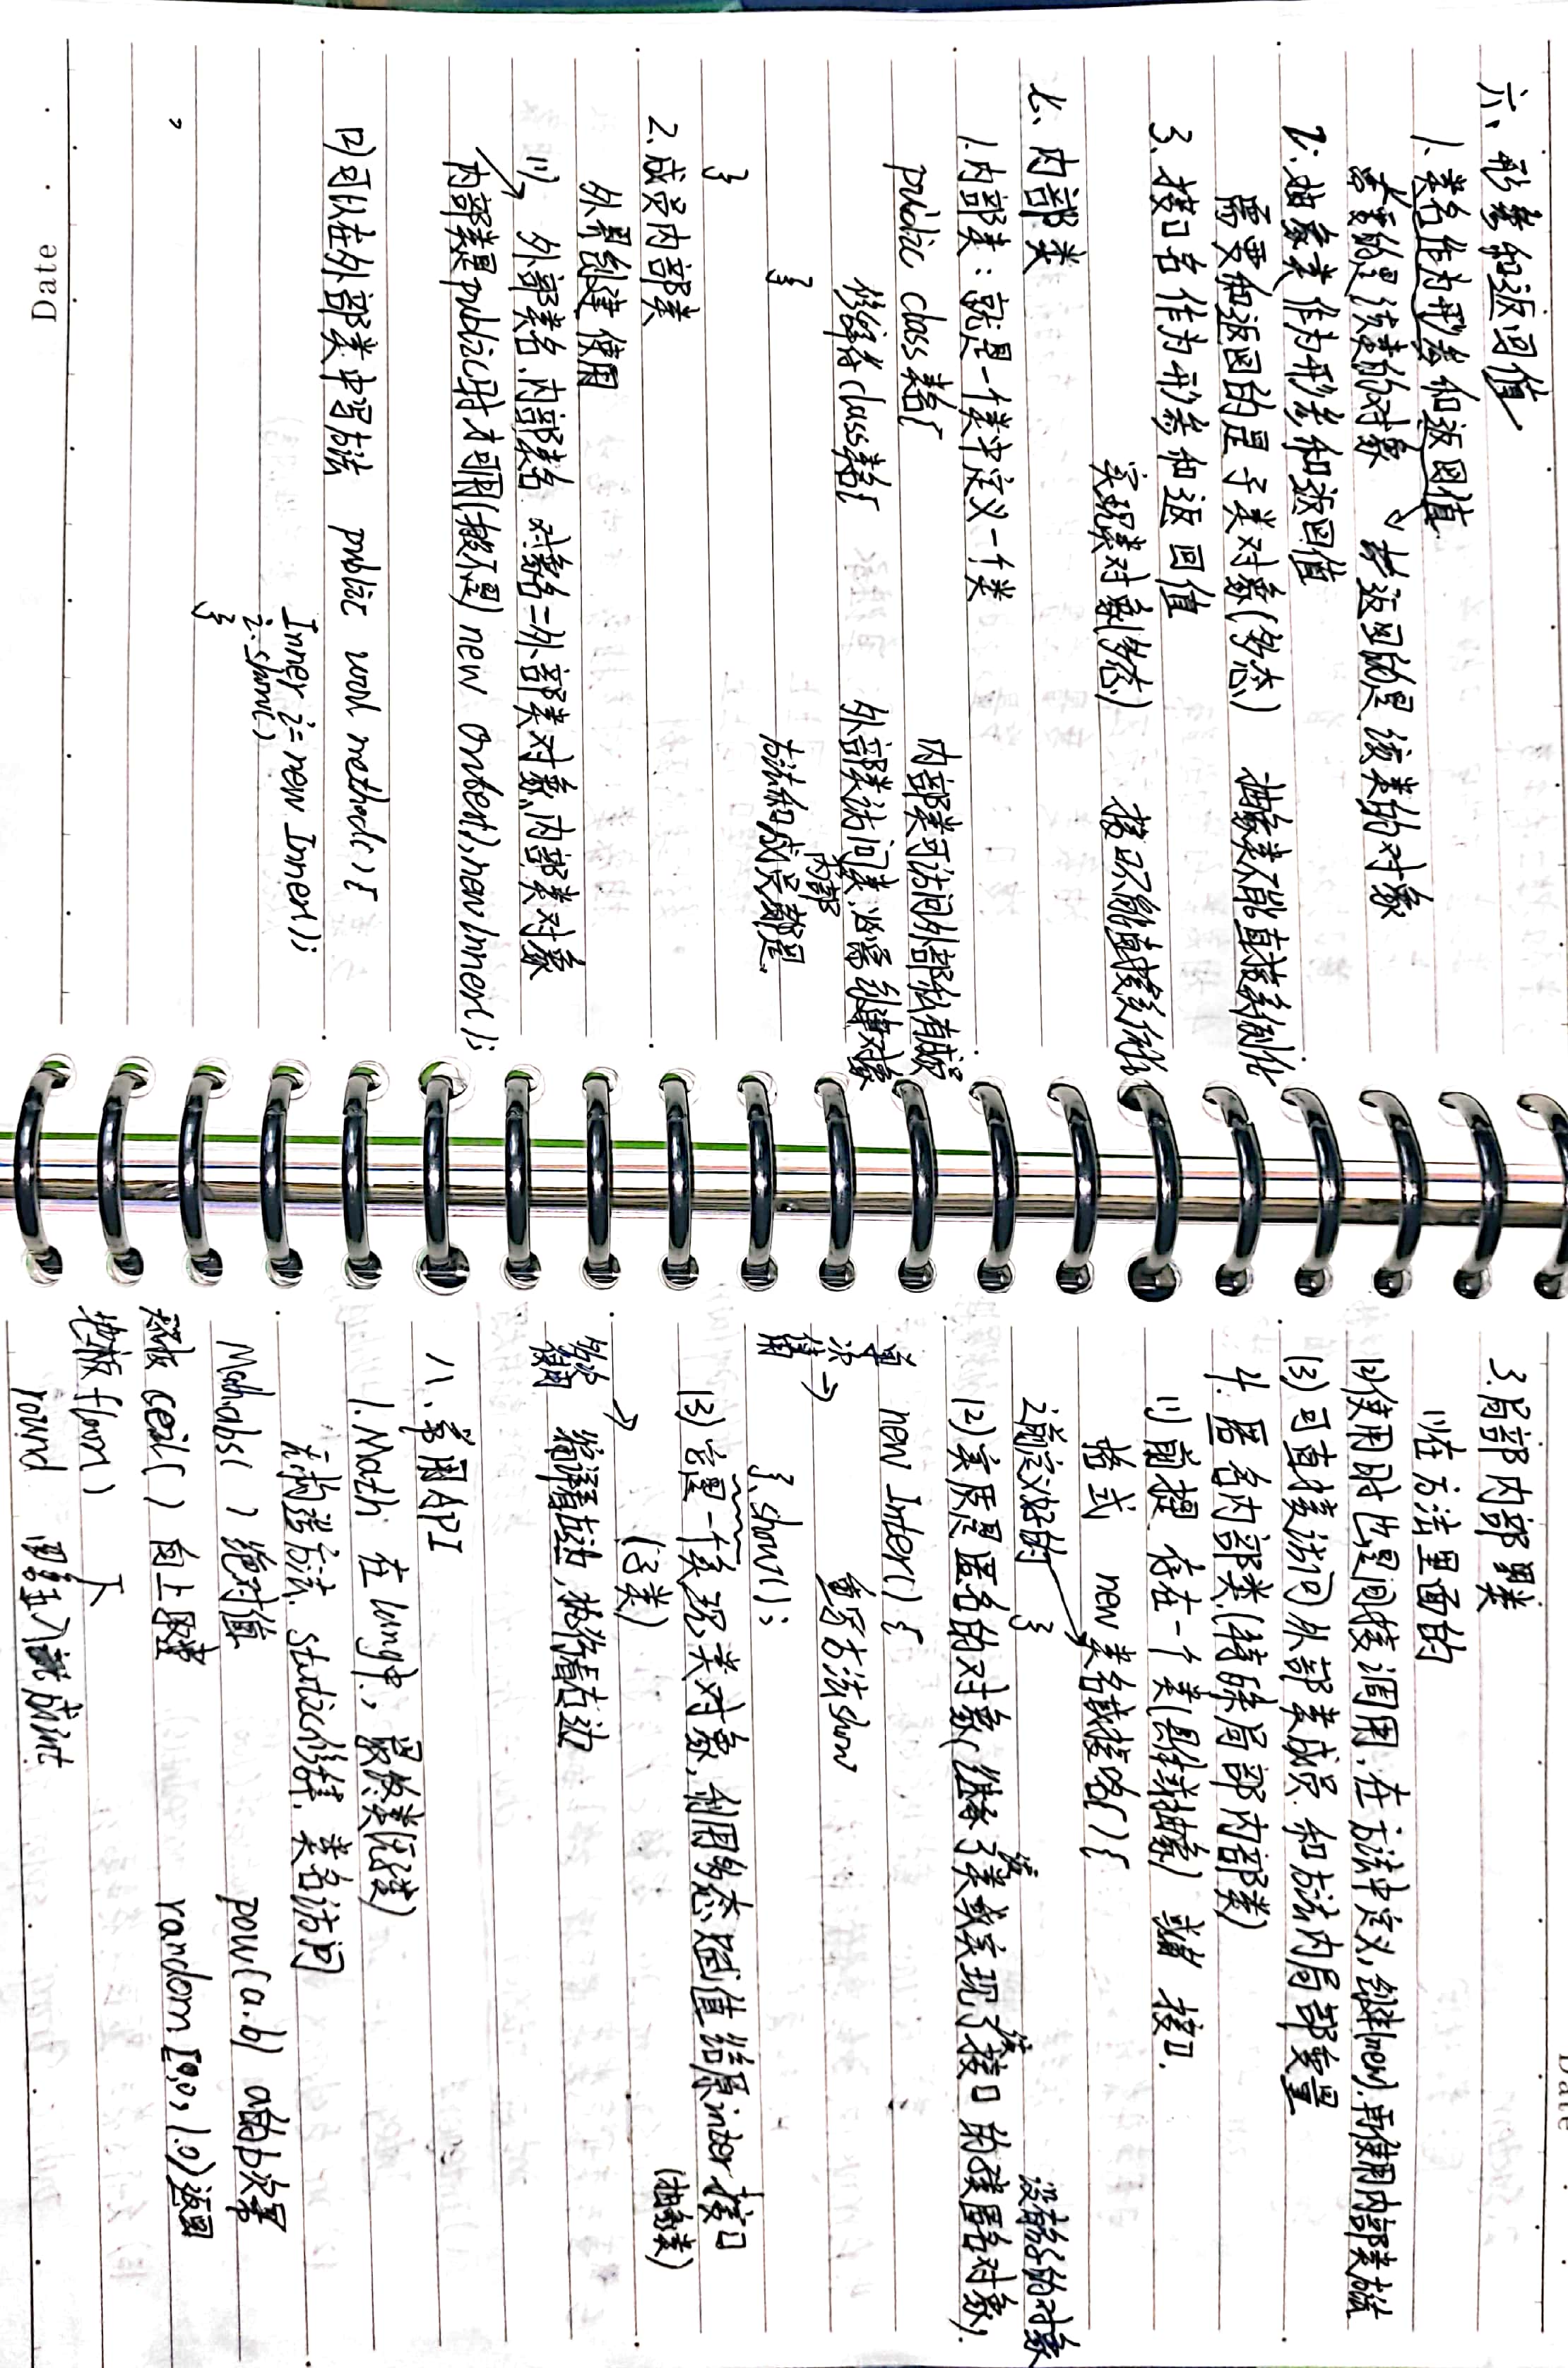 六、形参和返回值
1.类名作为形参和返回值.
需要的是该类的对象 返回的是该类的对象
2.抽象类作为形参和返回值
需要和返回的是子类对象(多态) 抽象类不能直接实例化
3、接口名作为形参和返回值
实现类对象(多态) 接口不能直接实例化
七、内部类
1.内部类：就是一个类中定义一个类
public class 类名{ 内部类可访问外部私有成员
修饰符 class 类名{ 外部类访问内部类,必需创建对象
} 方法和成员都是.
}
2.成员内部类
外界创建使用
(1) 外部类名.内部类名 对象名=外部类对象.内部类对象
内部类是public时才可用(一般不是) new Outer().new Inner();
(2)可以在外部类中写方法 public void method(){
Inner i= new Inner();
i.show()
}
Date
Date
3.局部内部类
(1)在方法里面的
(2)使用时也是间接调用,在方法中定义,创建(new),再使用内部类方法
(3)可直接访问外部类成员 和方法内局部变量
4.匿名内部类(特殊局部内部类)
(1)前提 存在一个类(具体或抽象) 或者 接口.
格式 new 类名或接口名(){
之前定义好的 }
没有名子的对象
(2)实质是匿名的对象(继承了该类或实现了该接口的子类匿名对象).
单次使用 → new Inter() {
重写方法show
}.show();
(3)它是一个实现类对象,利用多态赋值给原inter接口
(子类) (抽象类)
多次使用 → 编译看左边,执行看右边
八、常用API
1.Math 在lang中, 最终类(无子类)
无构造方法. static修饰, 类名访问
Math.abs( ) 绝对值 pow(a.b) a的b次幂
天花板 ceil( ) 向上取整 random [0.0, 1.0)返回
地板 floor( ) 下
round 四舍五入 成int